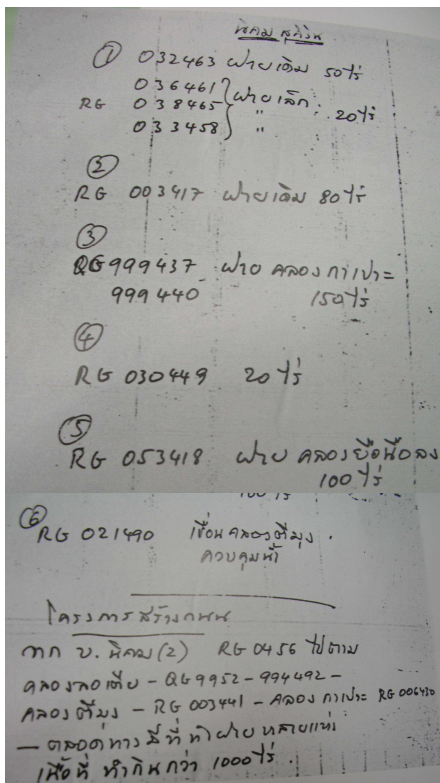 นิคม สุคิริน
① 032463 ฝายเดิม 50ไร่
036461
RG 038465 ฝายเล็ก 20ไร่
033458 "
②
RG 003417 ฝายเดิม 80ไร่
③
QG 999437 ฝาย คลอง กาเปาะ
999440 150ไร่
④
RG 030449 20ไร่
⑤
RG 053418 ฝาย คลองยือนือลง
100ไร่
100ไร่
⑥
RG 021490 เขื่อนคลองตีมุง
ควบคุมน้ำ
โครงการสร้างถนน
จาก บ. นิคม (2) RG 0456 ไปตาม
คลองลอเตีย - QG 9952 - 994492 -
คลองตีมุง - RG 003441 - คลอง กาเปาะ RG 006430
- ตลอดทาง มีที่ทำฝาย หลายแห่ง
เนื้อที่ ทำกินกว่า 1000ไร่.